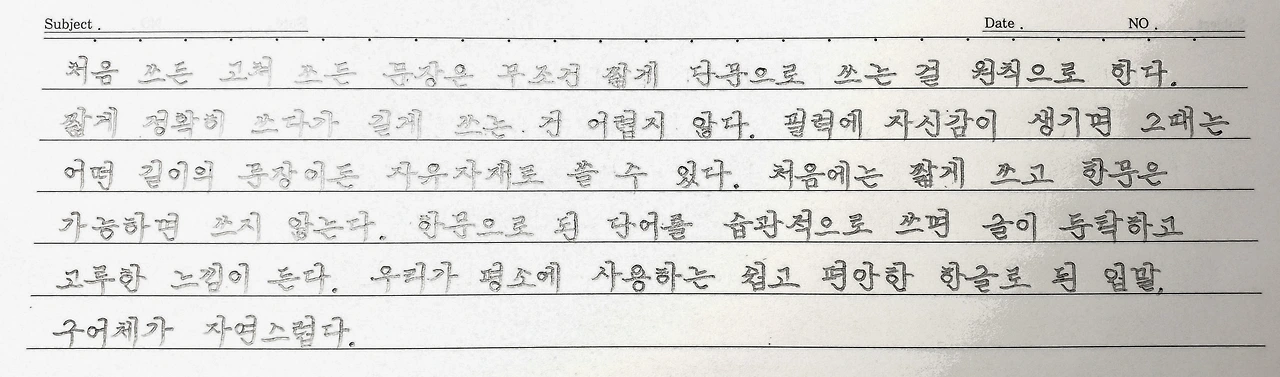 Subject .
Date .
NO .
처음 쓰든 고쳐 쓰든 문장은 무조건 짧게 단문으로 쓰는 걸 원칙으로 한다.
짧게 정확히 쓰다가 길게 쓰는 건 어렵지 않다. 필력에 자신감이 생기면 그때는
어떤 길이의 문장이든 자유자재로 쓸 수 있다. 처음에는 짧게 쓰고 한문은
가능하면 쓰지 않는다. 한문으로 된 단어를 습관적으로 쓰면 글이 둔탁하고
고루한 느낌이 든다. 우리가 평소에 사용하는 쉽고 편안한 한글로 된 입말,
구어체가 자연스럽다.